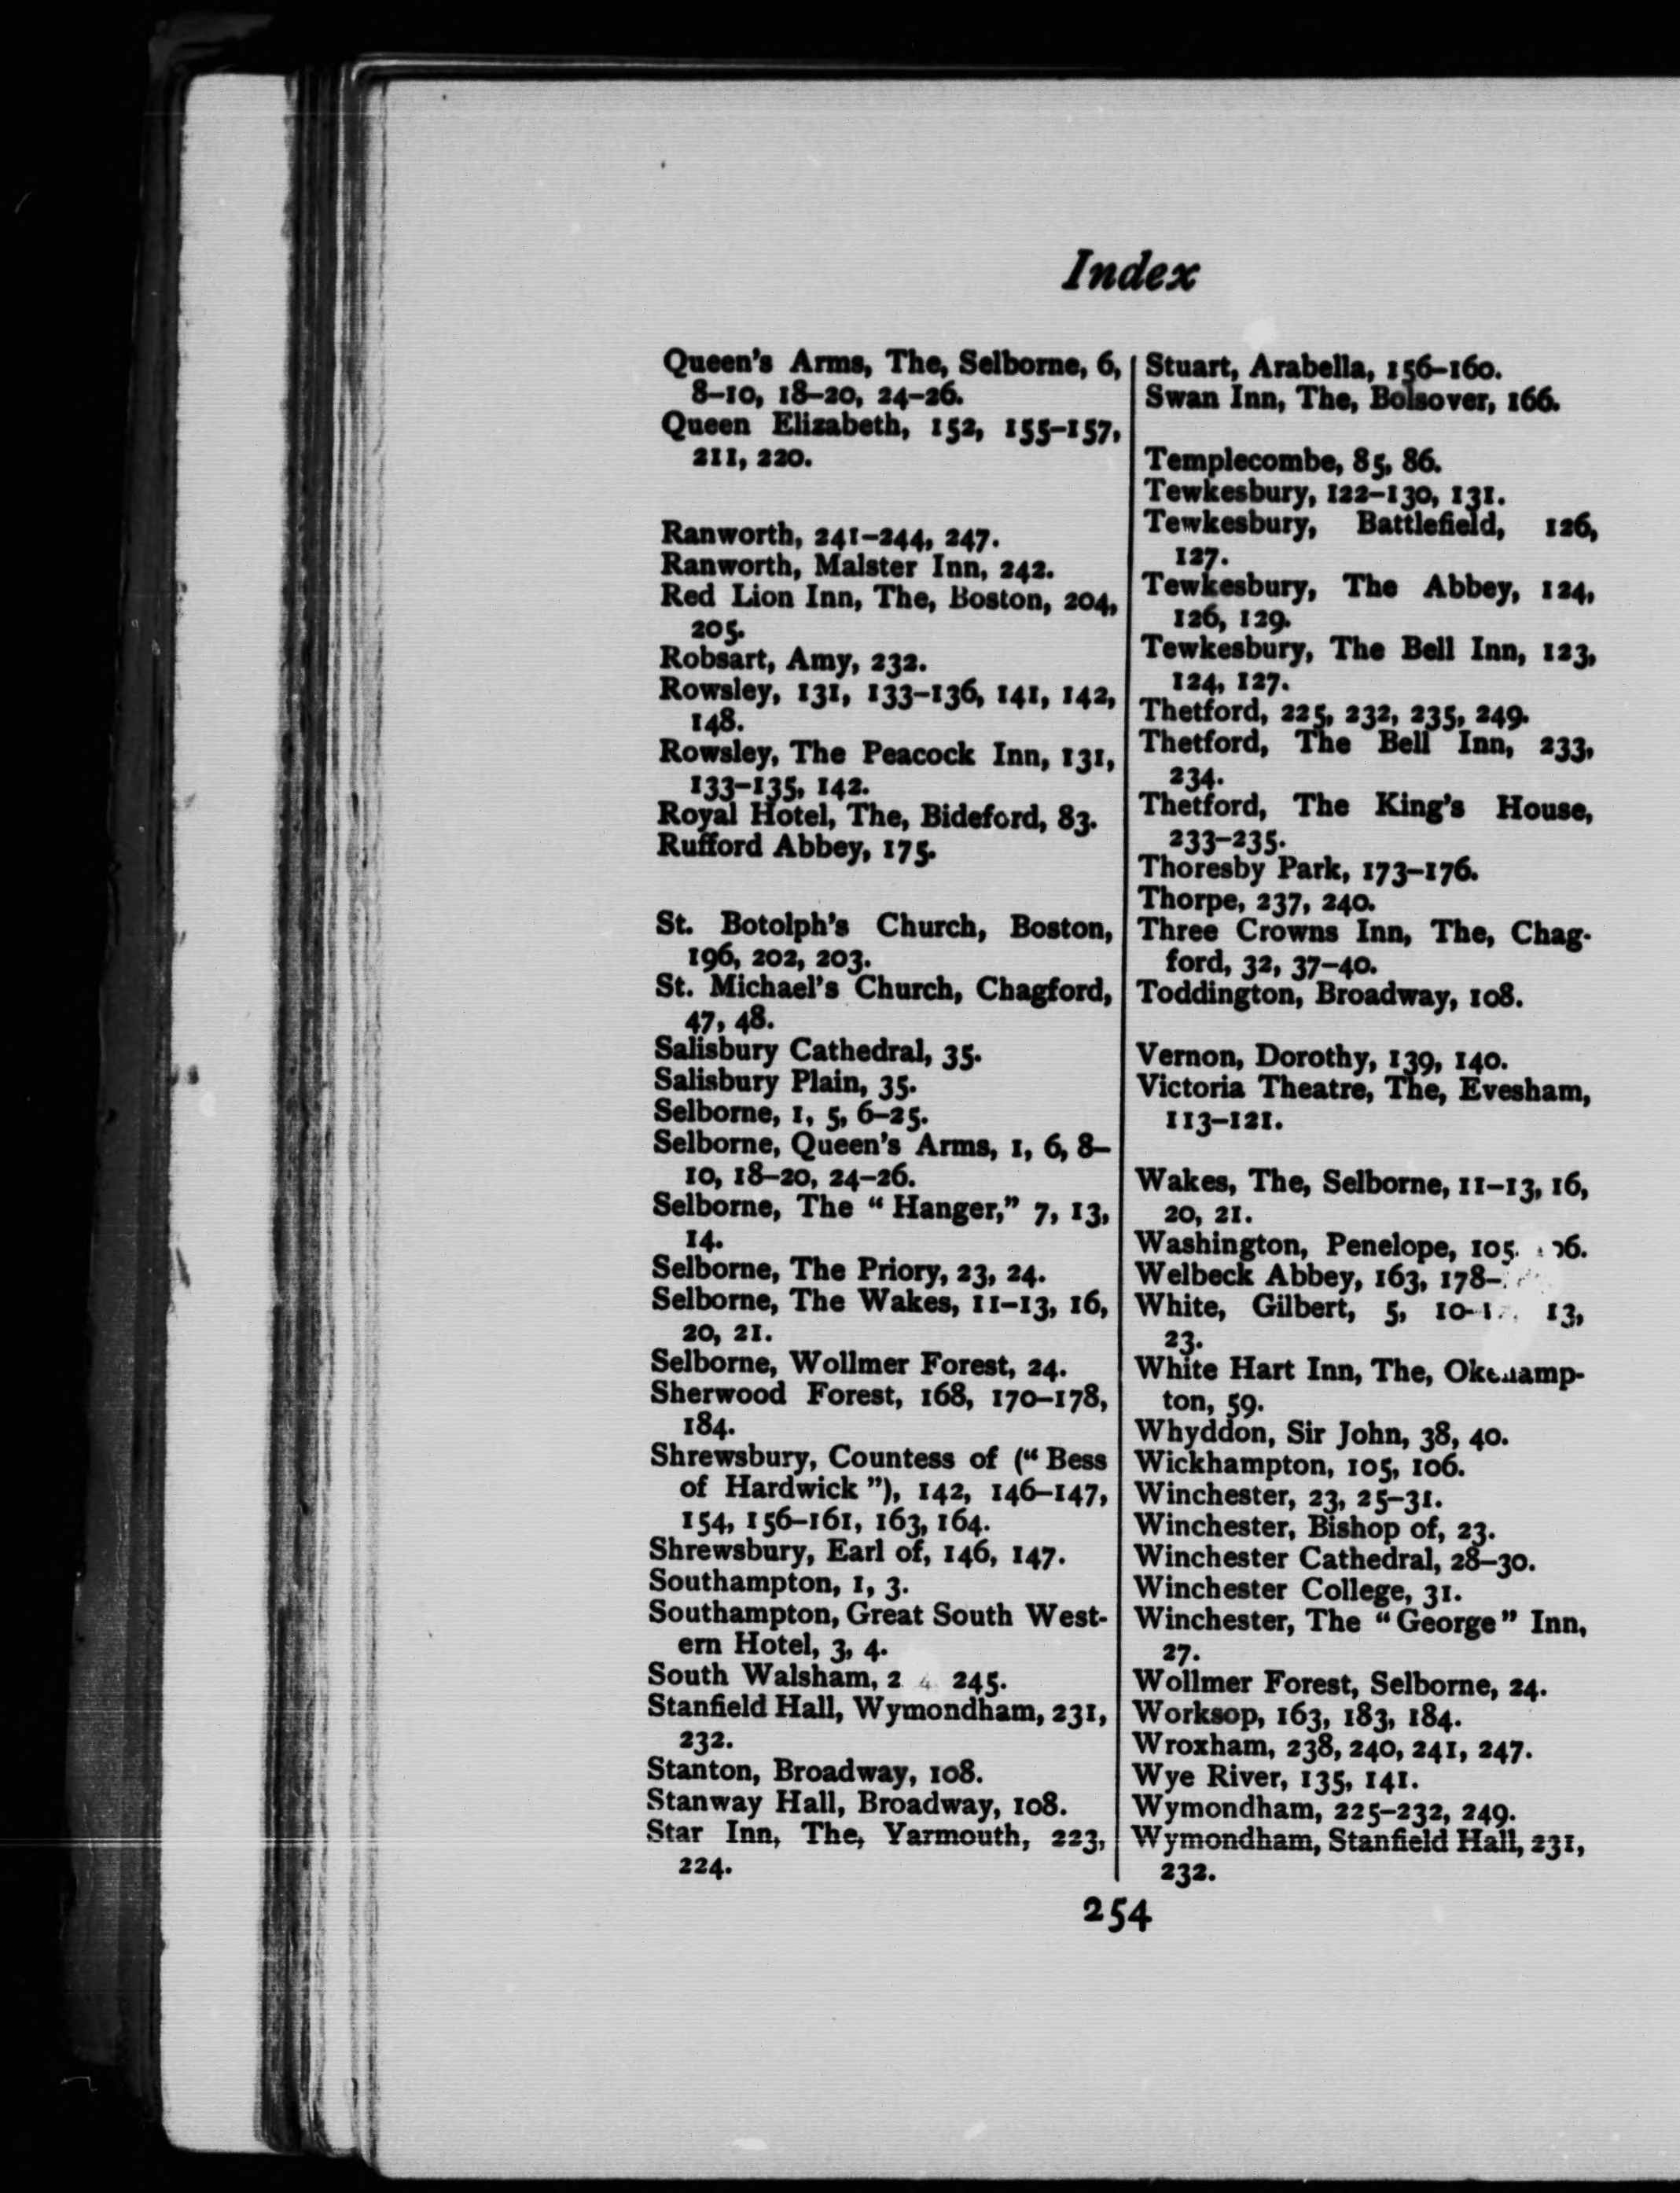 Index
Queen's Arms, The, Selborne, 6,
8–10, 18–20, 24–26.
Queen Elizabeth, 152, 155–157,
211, 220.
Ranworth, 241–244, 247.
Ranworth, Malster Inn, 242.
Red Lion Inn, The, Boston, 204,
205.
Robsart, Amy, 232.
Rowsley, 131, 133–136, 141, 142,
148.
Rowsley, The Peacock Inn, 131,
133–135, 142.
Royal Hotel, The, Bideford, 83.
Rufford Abbey, 175.
St. Botolph's Church, Boston,
196, 202, 203.
St. Michael's Church, Chagford,
47, 48.
Salisbury Cathedral, 35.
Salisbury Plain, 35.
Selborne, 1, 5, 6–25.
Selborne, Queen's Arms, 1, 6, 8–
10, 18–20, 24–26.
Selborne, The “Hanger,” 7, 13,
14.
Selborne, The Priory, 23, 24.
Selborne, The Wakes, 11–13, 16,
20, 21.
Selborne, Wollmer Forest, 24.
Sherwood Forest, 168, 170–178,
184.
Shrewsbury, Countess of (“Bess
of Hardwick”), 142, 146–147,
154, 156–161, 163, 164.
Shrewsbury, Earl of, 146, 147.
Southampton, 1, 3.
Southampton, Great South West-
ern Hotel, 3, 4.
South Walsham, 245.
Stanfield Hall, Wymondham, 231,
232.
Stanton, Broadway, 108.
Stanway Hall, Broadway, 108.
Star Inn, The, Yarmouth, 223,
224.
Stuart, Arabella, 156–160.
Swan Inn, The, Bolsover, 166.
Templecombe, 85, 86.
Tewkesbury, 122–130, 131.
Tewkesbury, Battlefield, 126,
127.
Tewkesbury, The Abbey, 124,
126, 129.
Tewkesbury, The Bell Inn, 123,
124, 127.
Thetford, 225, 232, 235, 249.
Thetford, The Bell Inn, 233,
234.
Thetford, The King's House,
233–235.
Thoresby Park, 173–176.
Thorpe, 237, 240.
Three Crowns Inn, The, Chag-
ford, 32, 37–40.
Toddington, Broadway, 108.
Vernon, Dorothy, 139, 140.
Victoria Theatre, The, Evesham,
113–121.
Wakes, The, Selborne, 11–13, 16,
20, 21.
Washington, Penelope, 105
Welbeck Abbey, 163, 178–
White, Gilbert, 5, 13,
23.
White Hart Inn, The, Okehamp-
ton, 59.
Whyddon, Sir John, 38, 40.
Wickhampton, 105, 106.
Winchester, 23, 25–31.
Winchester, Bishop of, 23.
Winchester Cathedral, 28–30.
Winchester College, 31.
Winchester, The “George” Inn,
27.
Wollmer Forest, Selborne, 24.
Worksop, 163, 183, 184.
Wroxham, 238, 240, 241, 247.
Wye River, 135, 141.
Wymondham, 225–232, 249.
Wymondham, Stanfield Hall, 231,
232.
254